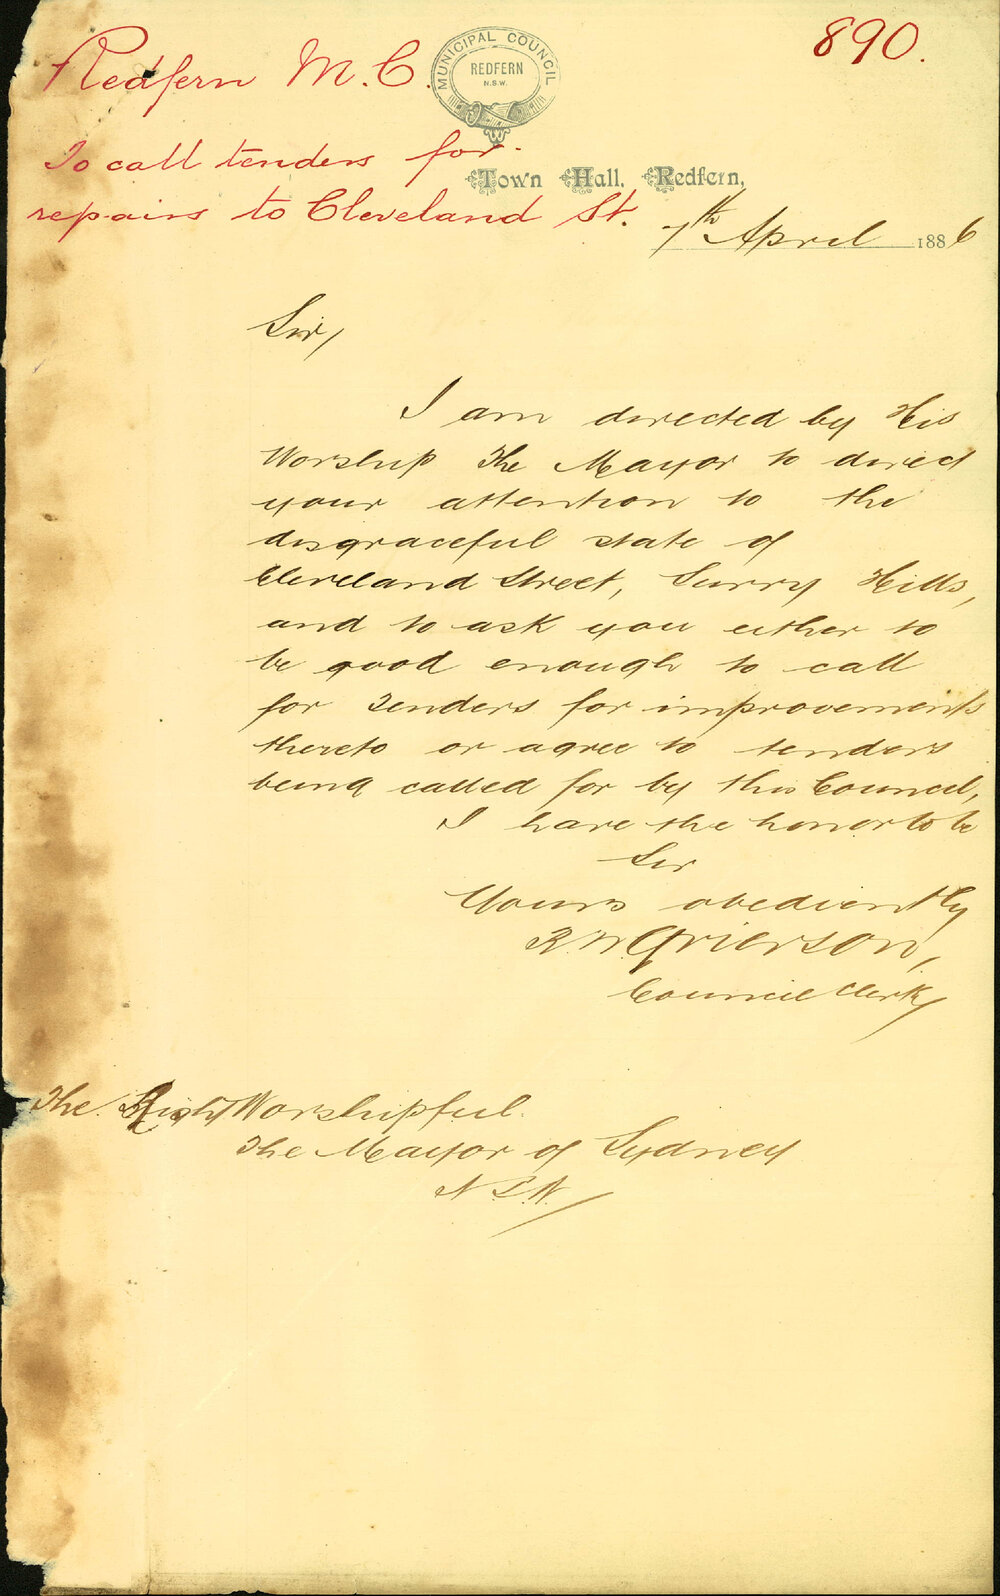 890.
Redfern M.C.
MUNICIPAL COUNCIL
REDFERN
N.S.W.
To call tenders for
repairs to Cleveland St.
Town Hall, Redfern,
7th April 1886
Sir,
I am directed by His
Worship The Mayor to direct
your attention to the
disgraceful state of
Cleveland Street, Surry Hills,
and to ask you either to
be good enough to call
for Tenders for improvements
thereto or agree to tenders
being called for by this Council,
I have the honor to be
Sir
Yours obediently
R.W. Grierson,
Council Clerk
The Right Worshipful.
The Mayor of Sydney
N.S.W.